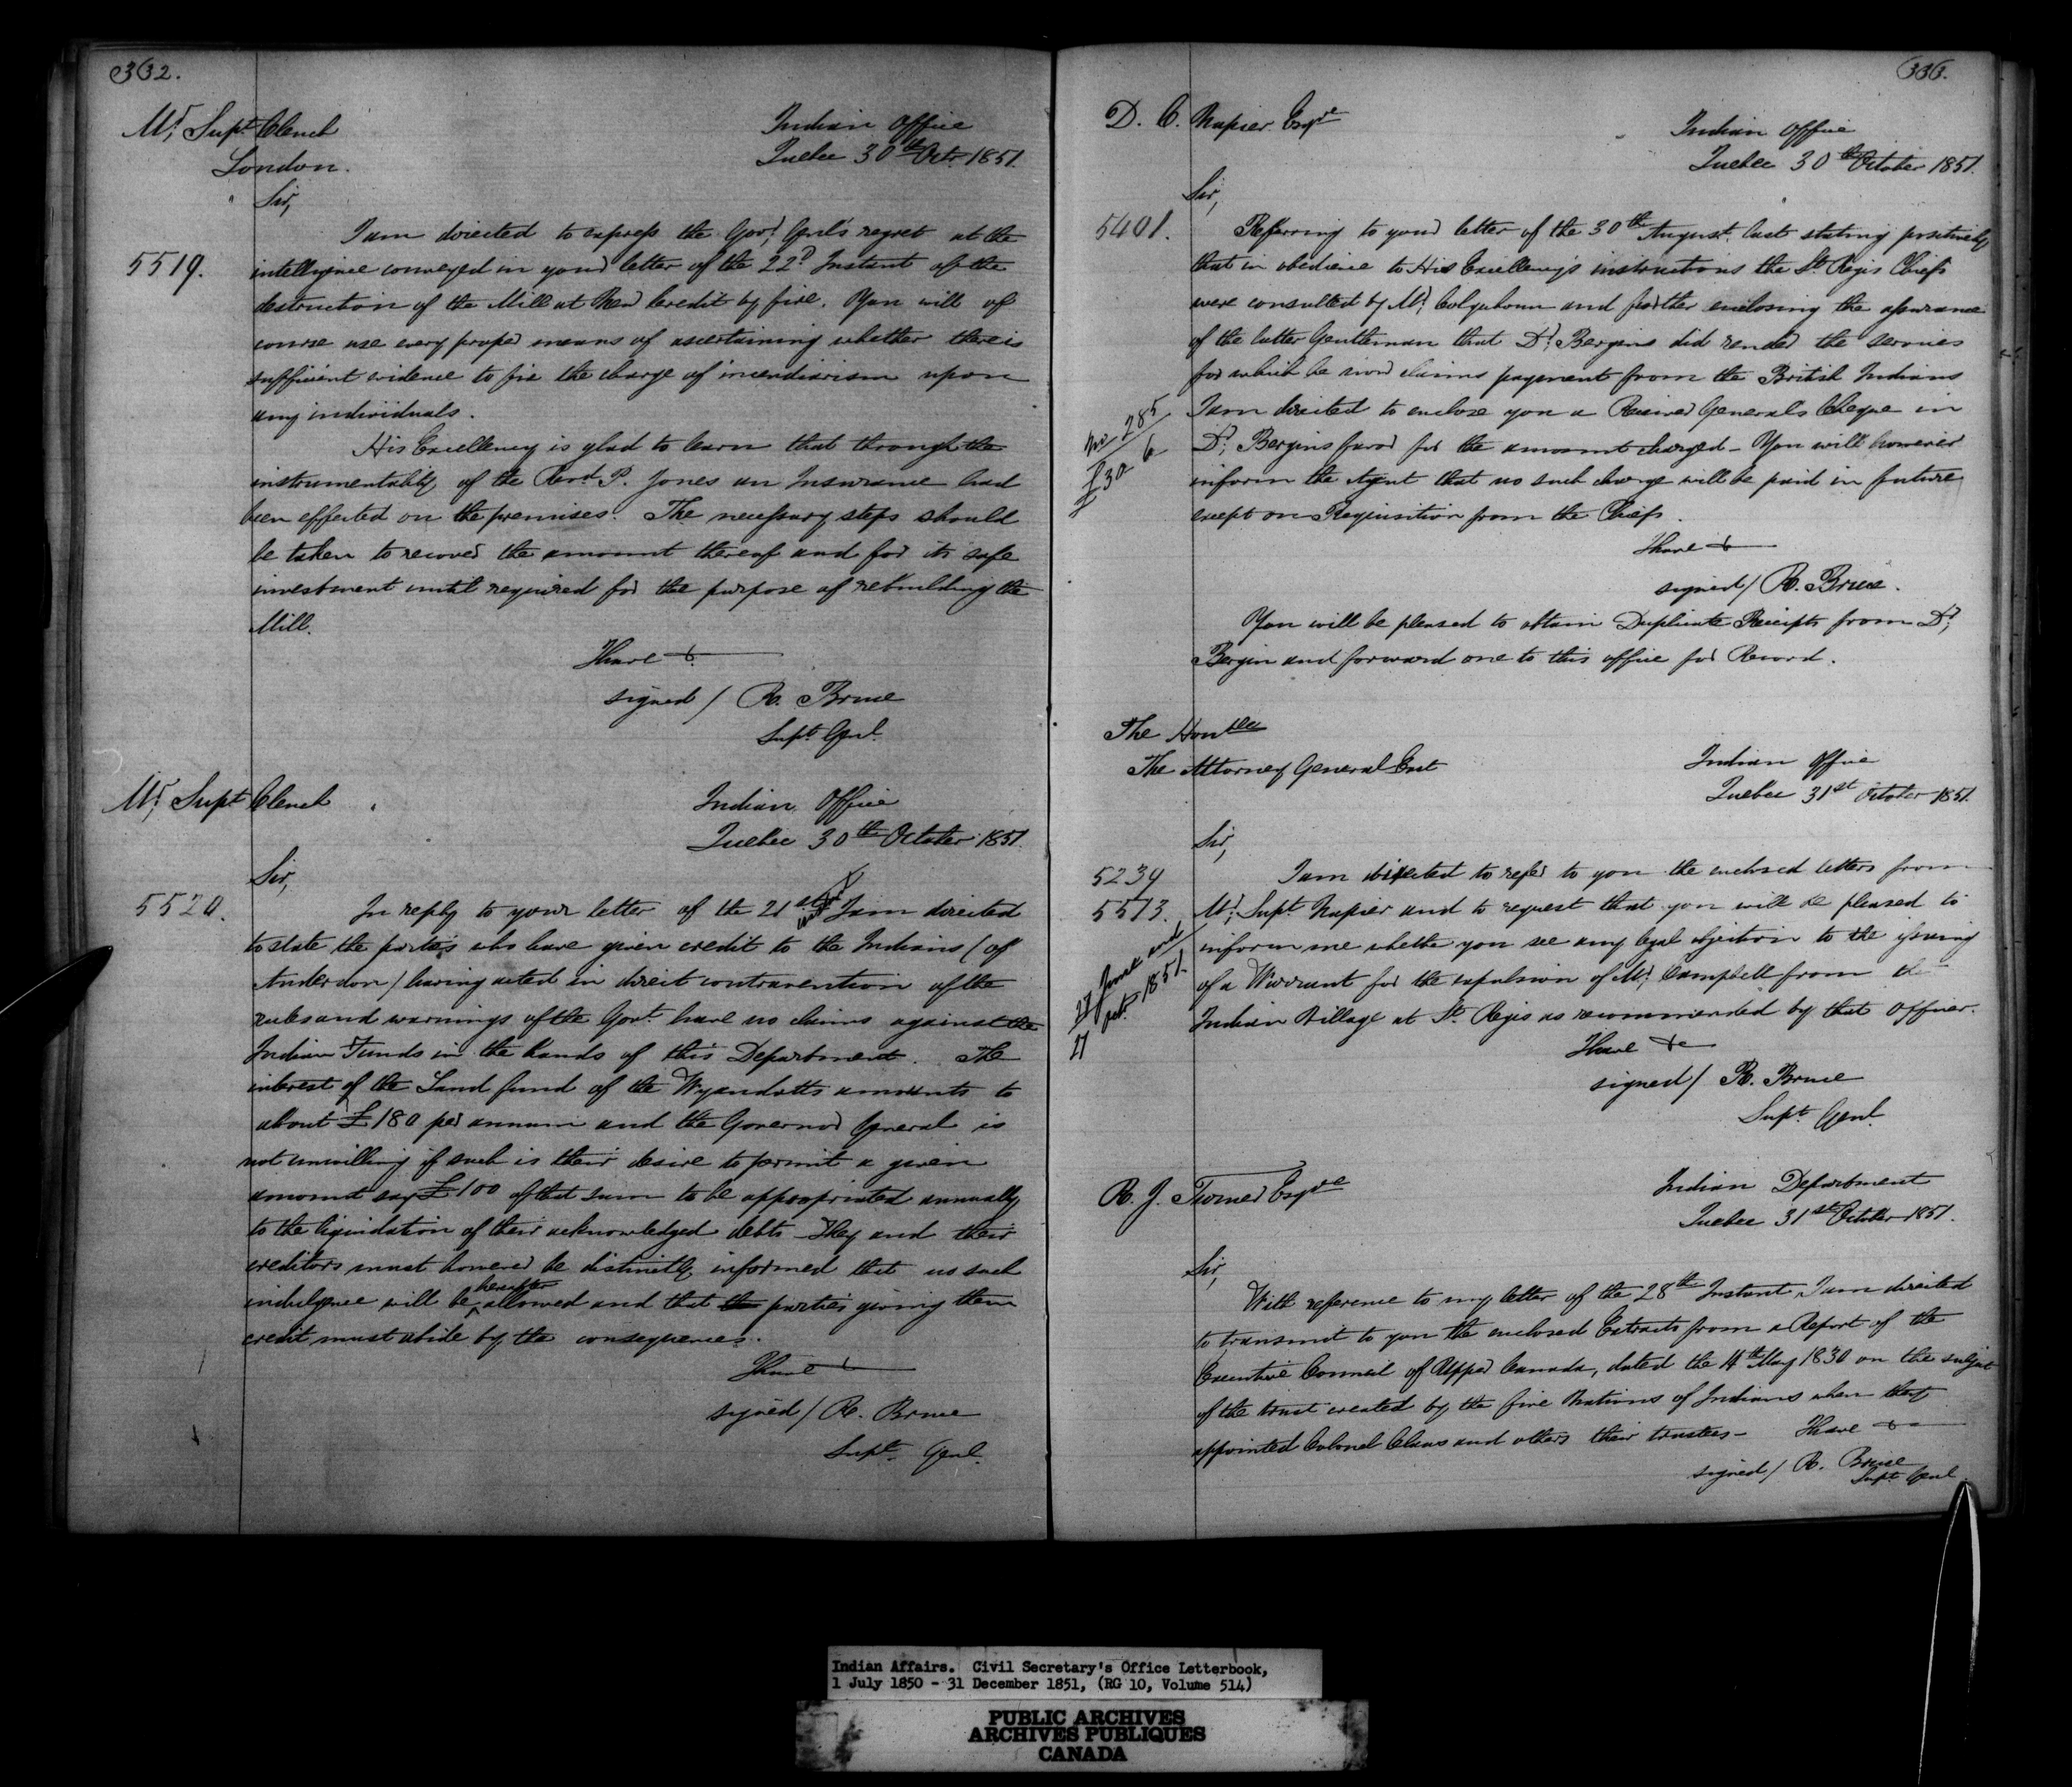 332.
Mr. Supt. Clench
London.
Indian Office
Quebec 30th Octr. 1851.
Sir,
I am directed to express the Govr. Genl's regret at the
5519. intelligence conveyed in your letter of the 22d Instant of the
destruction of the Mill at New Credit by fire. You will of
course use every proper means of ascertaining whether there is
sufficient evidence to fix the charge of incendiarism upon
any individuals.
His Excellency is glad to learn that through the
instrumentality of the Revd. P. Jones an Insurance had
been effected on the premises. The necessary steps should
be taken to recover the amount thereof and for its safe
investment until required for the purpose of rebuilding the
Mill.
I have &
signed / R. Bruce
Supt. Genl.
Mr. Supt. Clench
Indian Office
Quebec 30th October 1851.
Sir,
5520. In reply to your letter of the 21st inst I am directed
to state the parties who have given credit to the Indians (of
Anderdon) having acted in direct contravention of the
rules and warnings of the Govt. have no claims against the
Indian Funds in the hands of this Department. The
interest of the Land fund of the Wyandotts amounts to
about £180 per annum and the Governor General is
not unwilling if such is their desire to permit a given
amount say £100 of that sum to be appropriated annually
to the liquidation of their acknowledged debts – They and their
creditors must however be distinctly informed that no such
indulgence will be hereafter allowed and that the parties giving them
credit must abide by the consequences.
I have &
signed / R. Bruce
Supt. Genl.
333.
D. C. Napier Esqre
Indian Office
Quebec 30th October 1851.
Sir,
5401. Referring to your letter of the 30th August last stating positively
that in obedience to His Excellency's instructions the St. Regis Chiefs
were consulted by Mr. Colquhoun and further enclosing the assurance
of the latter Gentleman that Dr. Bergins did render the services
for which he now claims payment from the British Indians
I am directed to enclose you a Receiver General's Cheque in
No. 285
£30 - 6
Dr. Bergins favor for the amount charged – You will however
inform the Agent that no such charge will be paid in future
except on Requisition from the Chiefs.
I have &
signed / R. Bruce.
You will be pleased to obtain Duplicate Receipts from Dr.
Bergin and forward one to this office for Record.
The Honble
The Attorney General East
Indian Office
Quebec 31st October 1851.
Sir,
5239 I am directed to refer to you the enclosed letters from
5513. Mr. Supt. Napier and to request that you will be pleased to
inform me whether you see any legal objection to the issuing
of a Warrant for the expulsion of Mr. Campbell from the
Indian Village at St. Regis as recommended by that Officer.
27 June and
27 Octr. 1851.
I have &c
signed / R. Bruce
Supt. Genl.
R. J. Turner Esqre
Indian Department
Quebec 31st October 1851.
Sir,
With reference to my letter of the 28th Instant I am directed
to transmit to you the enclosed Extracts from a Report of the
Executive Council of Upper Canada, dated the 4th May 1830 on the subject
of the trust created by the five Nations of Indians when they
appointed Colonel Claus and others their trustees –
I have &c
signed / R. Bruce
Supt. Genl
Indian Affairs. Civil Secretary's Office Letterbook,
1 July 1850 - 31 December 1851, (RG 10, Volume 514)
PUBLIC ARCHIVES
ARCHIVES PUBLIQUES
CANADA